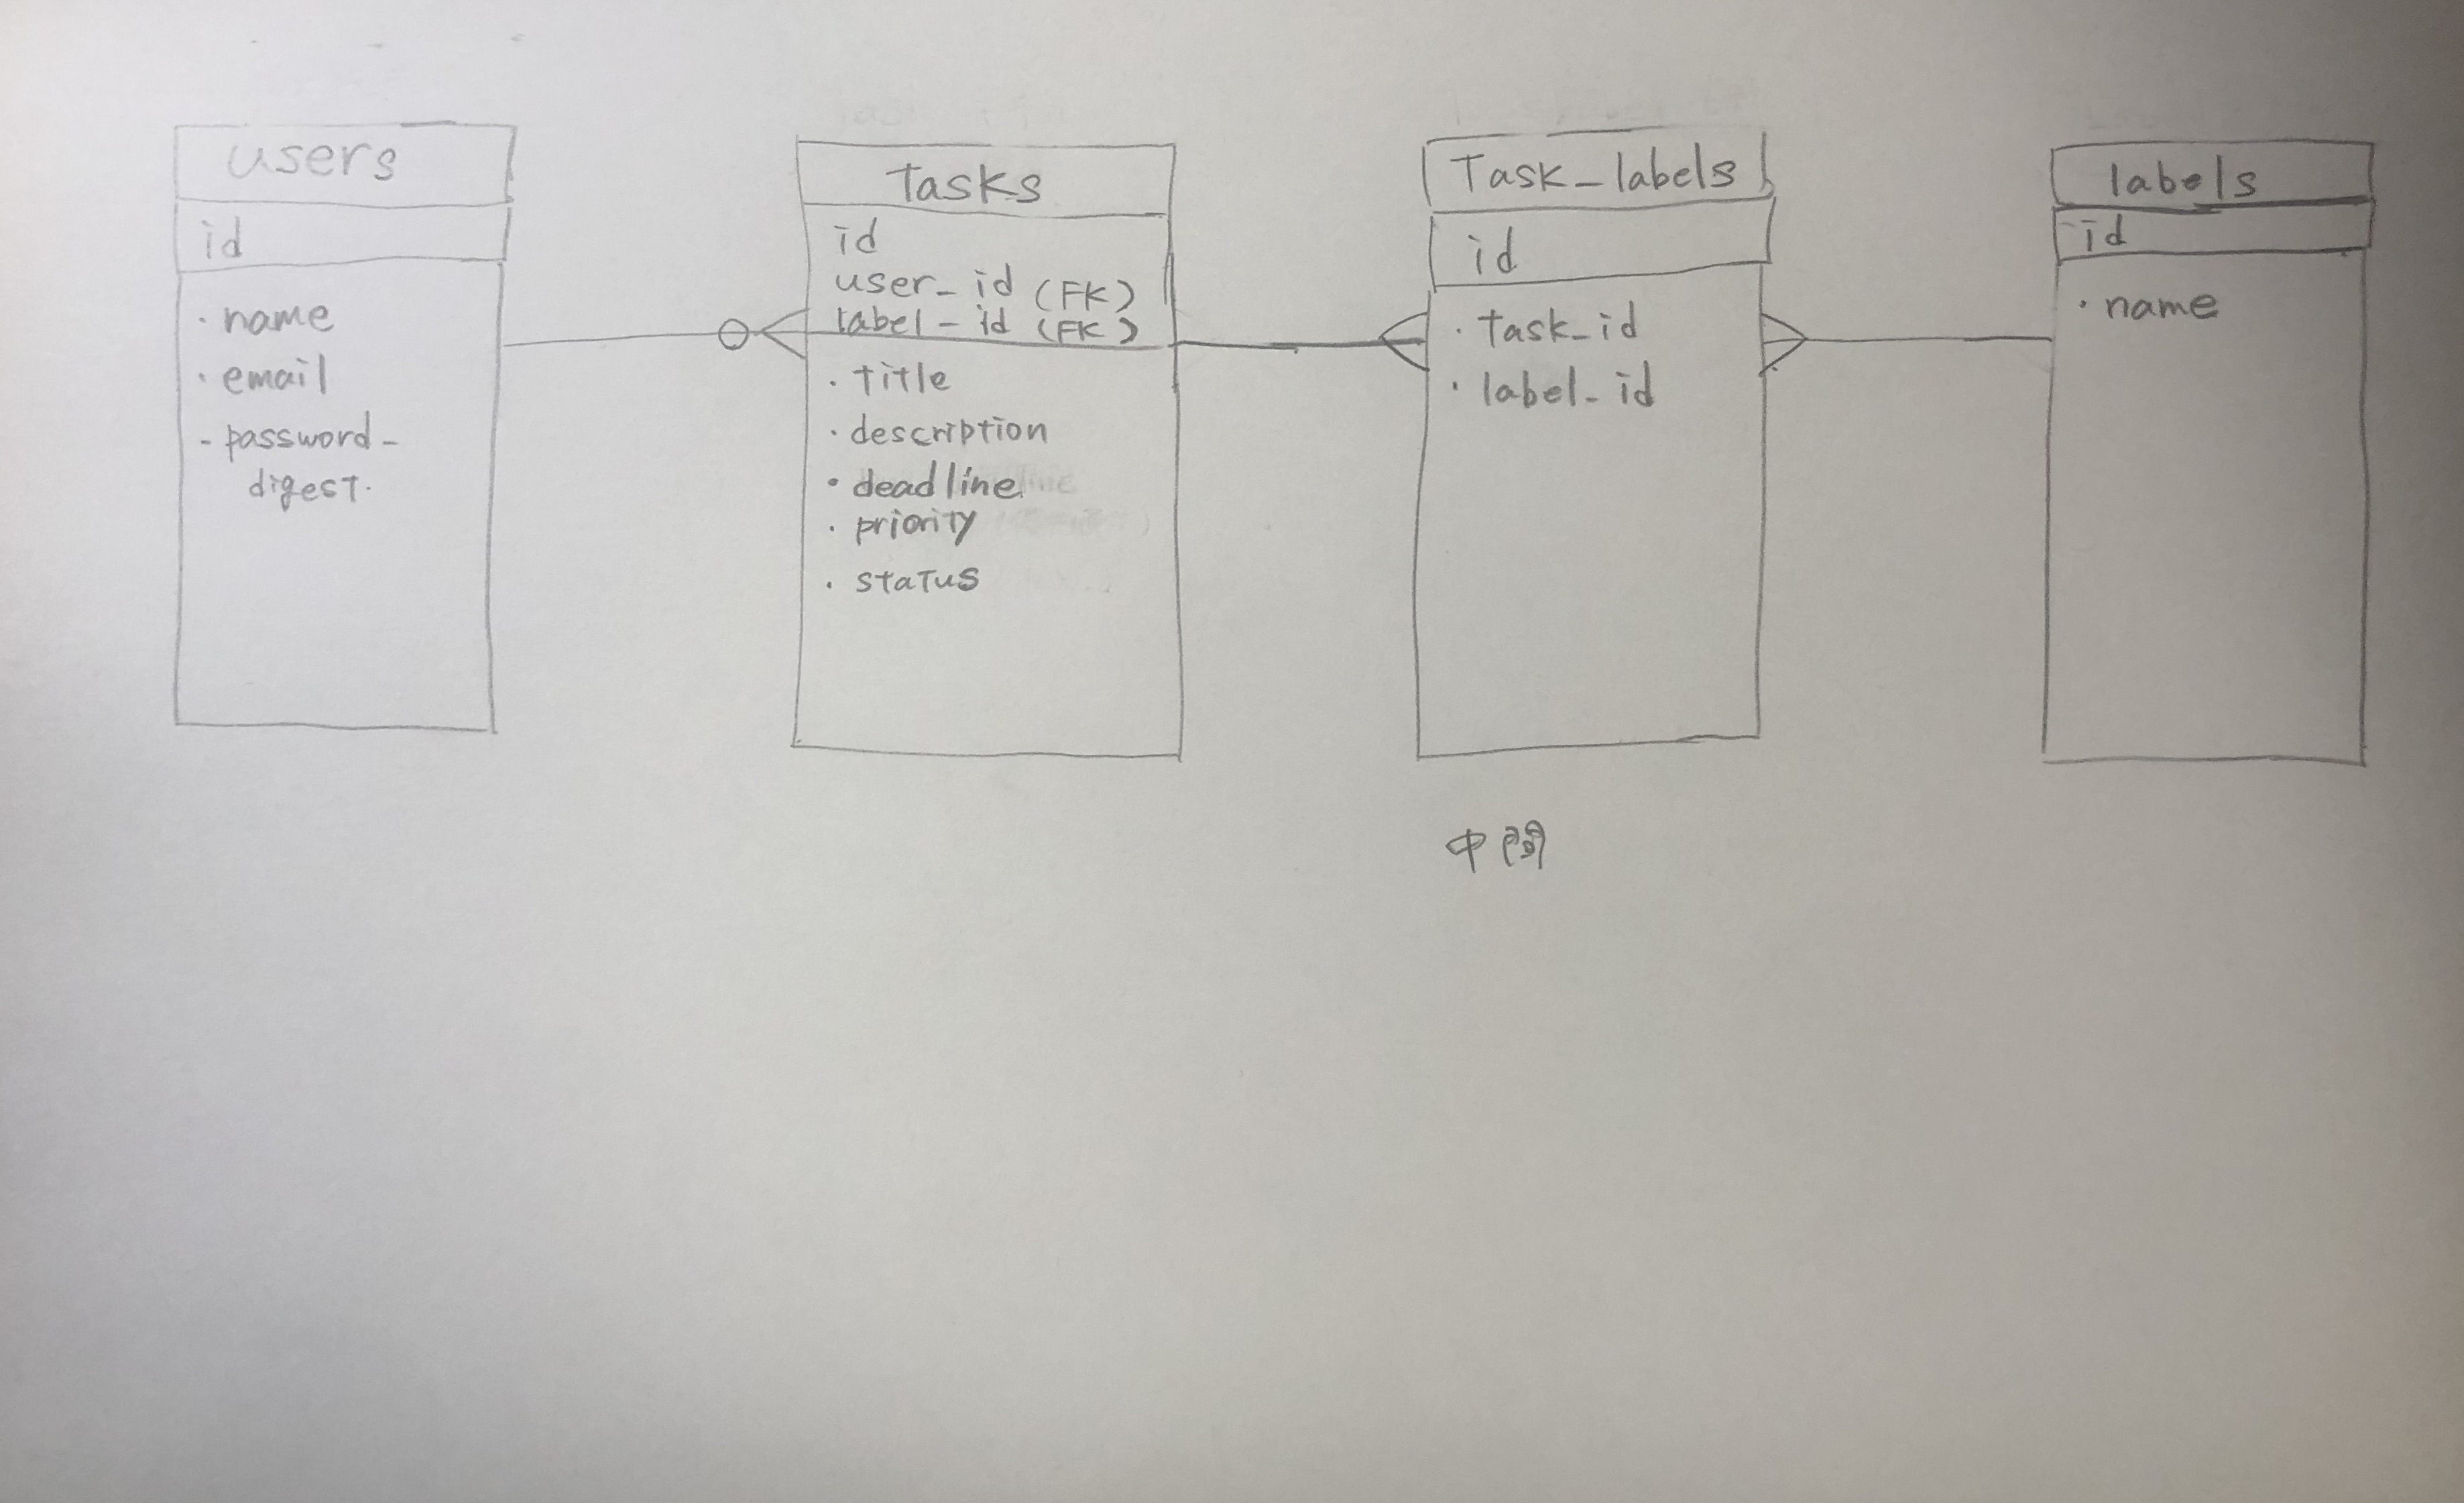 users
id
・name
・email
- password_
digest.
Tasks
id
user_id (FK)
label_id (FK)
・title
・description
・deadline
・priority
・status
Task_labels
id
・task_id
・label_id
中間
labels
id
・name